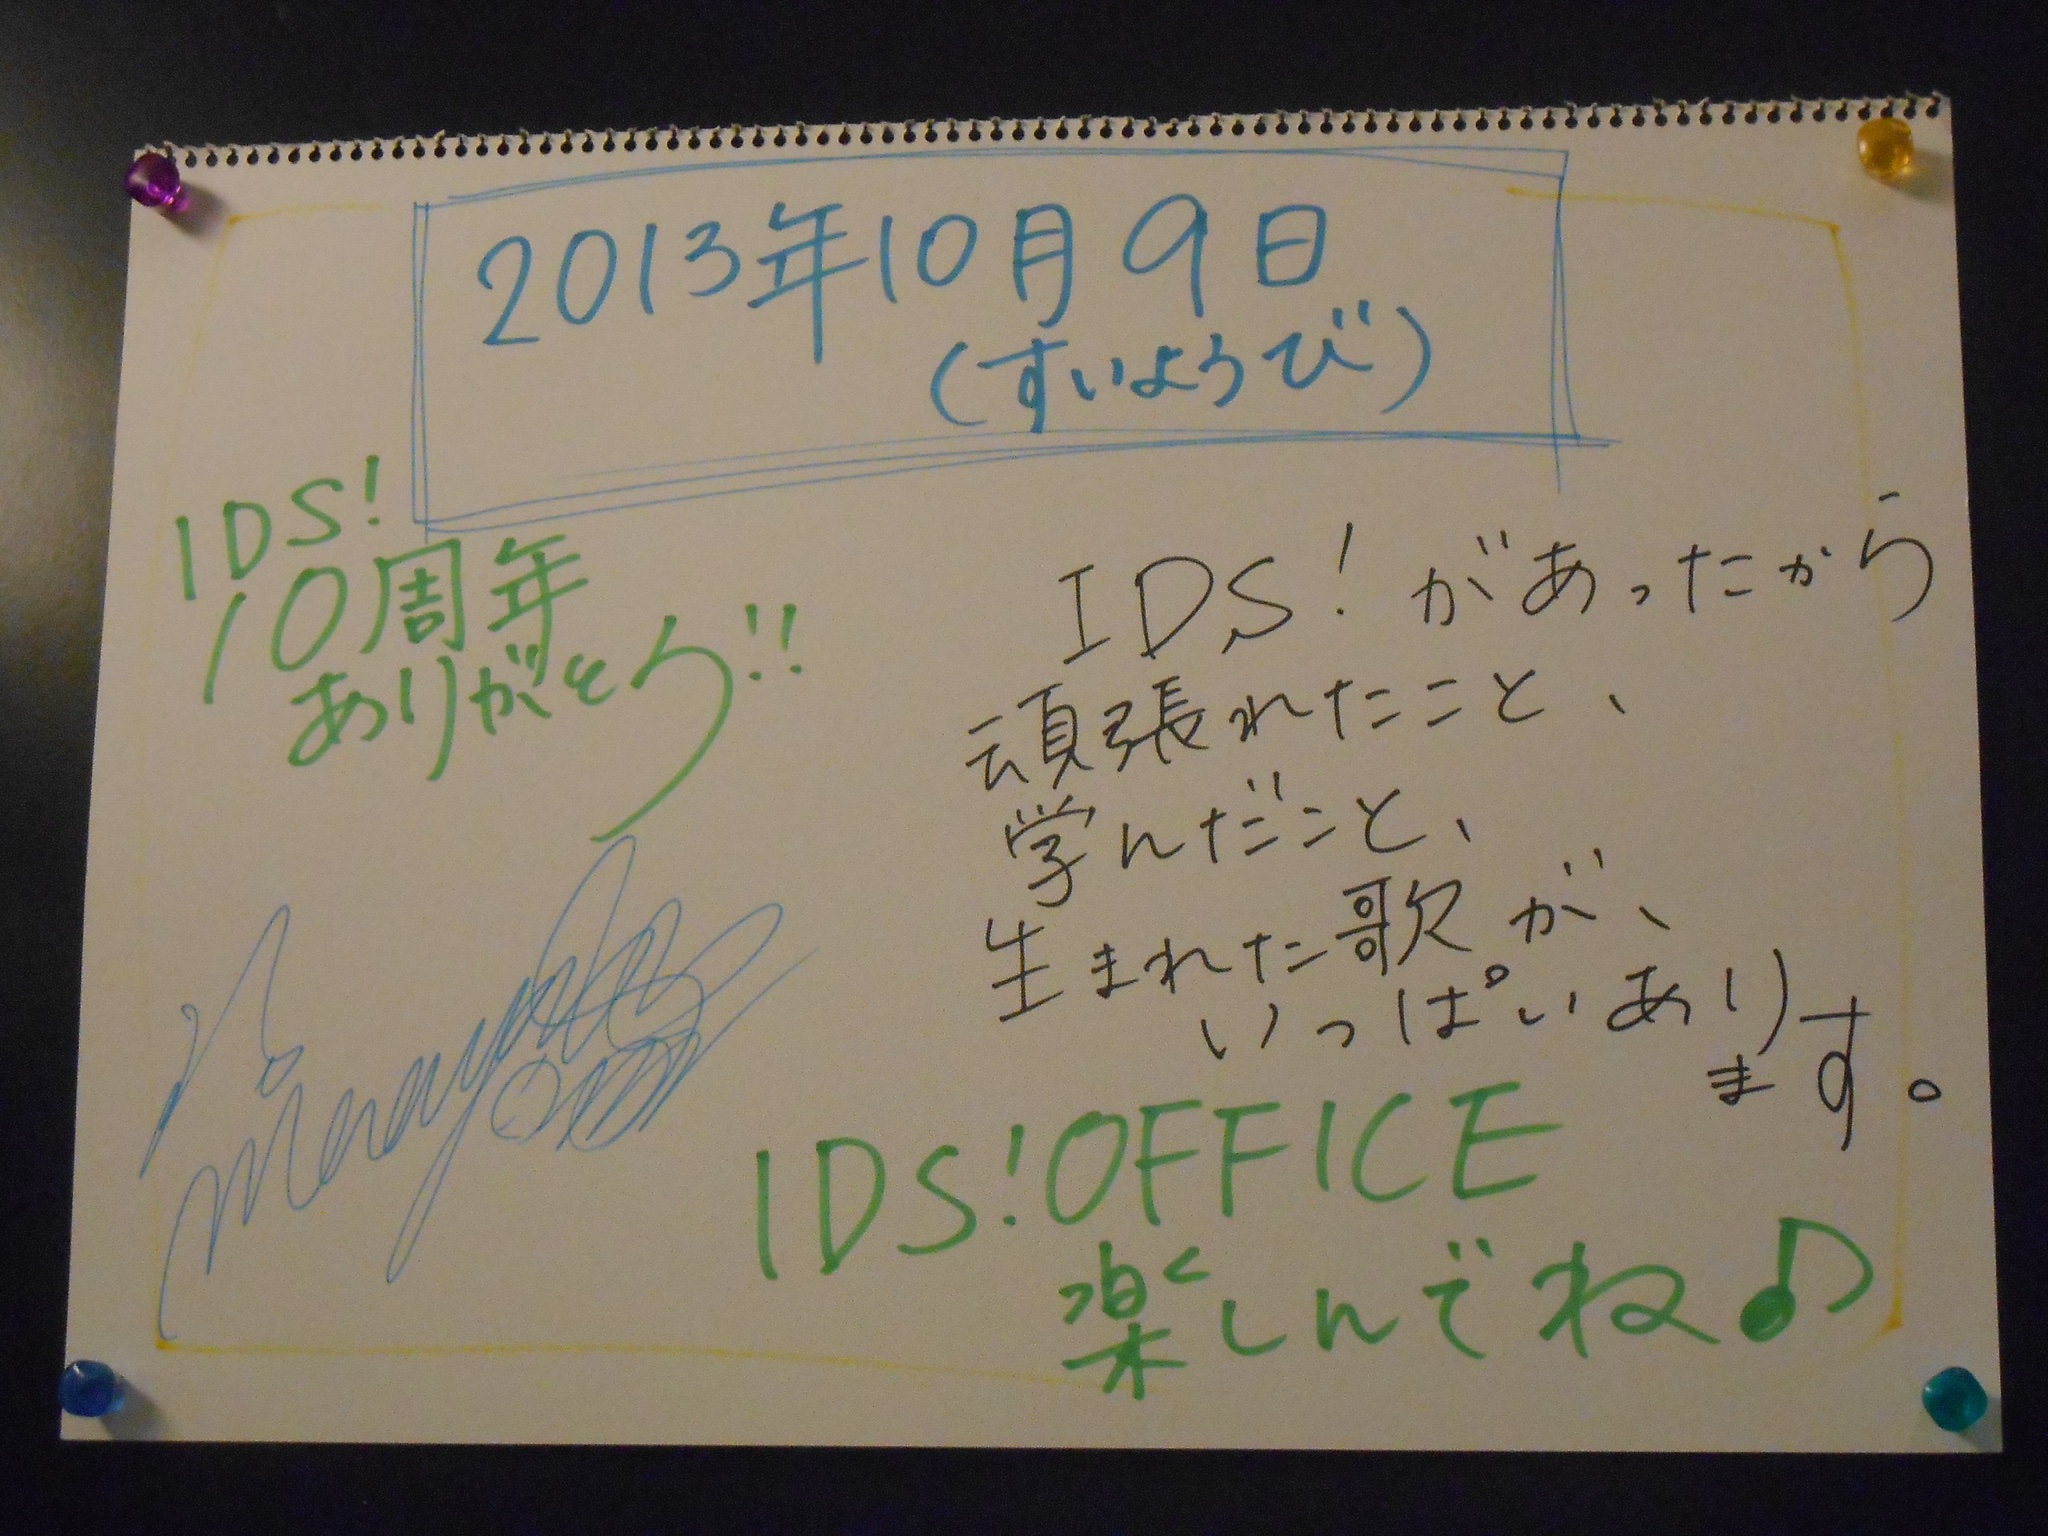 2013年10月9日
(すいようび)
IDS!
10周年
ありがとう!!
IDS!があったから
頑張れたこと、
学んだこと、
生まれた歌が、
いっぱいあり
ます。
IDS!OFFICE
楽しんでね♪